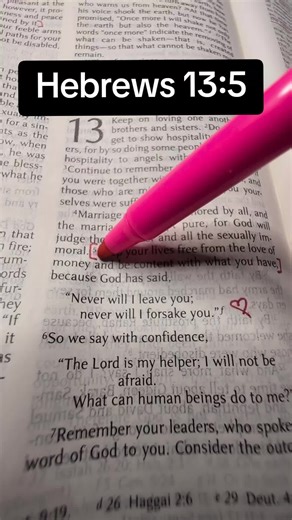 Hebrews 13:5
who warns us from heaven?
his voice shook the earth, but
promised, "Once more I will
the earth but also the
words "once more" indicate the
what can be shaken—that
things—so that what cannot be shaken
remain.
peace and
however, it pos-
ness and peace
feeble arms
paths for your
be disabled,
13 Keep on loving one
brothers and sisters. ²Do
get to show hospitality
ers, for by so doing some people
hospitality to angels with
³Continue to remember
you were together wit
and those who are m
selves were suff
⁴Marriage ored by all, and
the marria pure, for God will
judge the and all the sexually im-
moral. your lives free from the love of
money and be content with what you have,
because God has said,
"Never will I leave you;
never will I forsake you."f
⁶So we say with confidence,
"The Lord is my helper; I will not be
afraid.
What can human beings do to me?"
⁷Remember your leaders, who spoke
word of God to you. Consider the outc
for a sin-
as the
when
he was
bless-
what he
on that
fire;
rum-
ords
fur-
hey
"If
it
as
9:19.
d 26 Haggai 2:6
e 29 Deut. 4